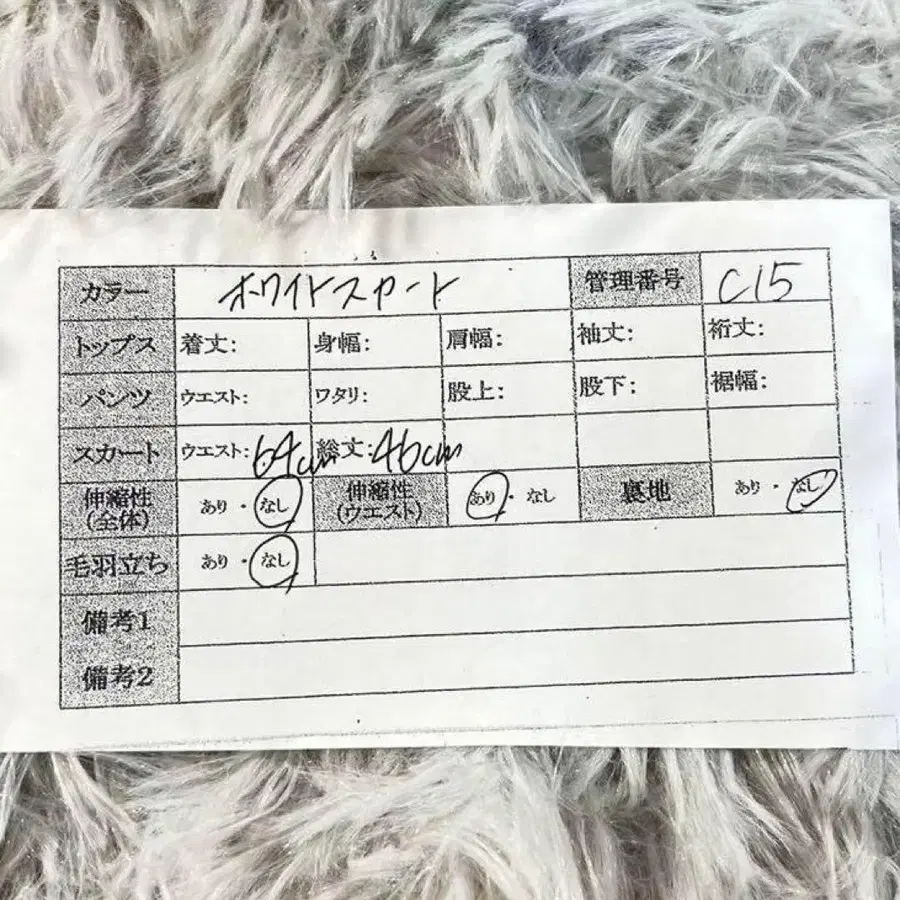 カラー ホワイトスカート 管理番号 C15
トップス 着丈: 身幅: 肩幅: 袖丈: 裄丈:
パンツ ウエスト: ワタリ: 股上: 股下: 裾幅:
スカート ウエスト: 64cm 総丈: 46cm
伸縮性(全体) あり・なし 伸縮性(ウエスト) あり・なし 裏地 あり・なし
毛羽立ち あり・なし
備考1
備考2